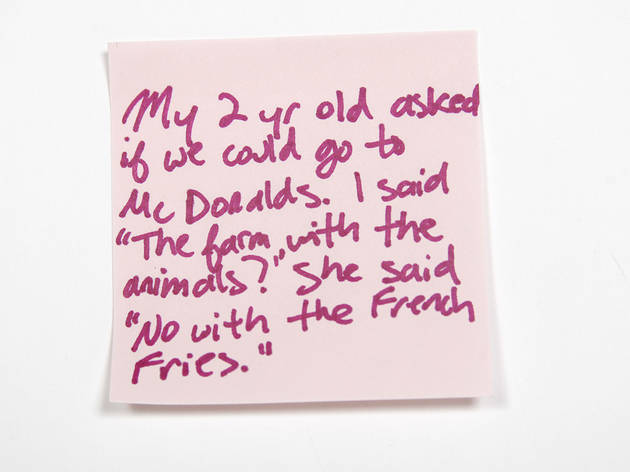 My 2 yr old asked
if we could go to
McDonalds. I said
"The farm with the
animals?" She said
"No with the French
Fries."